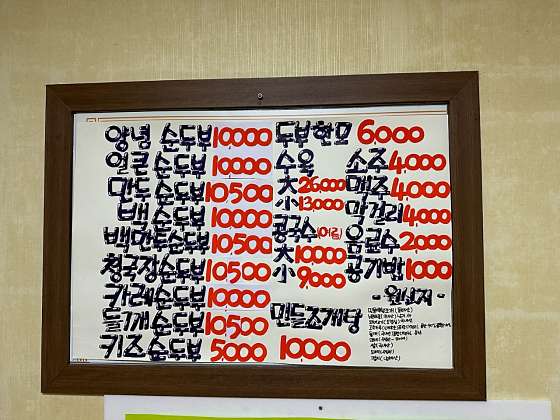 양념 순두부 10,000
얼큰 순두부 10,000
만두 순두부 10,500
백 순두부 10,000
백만두순두부 10,500
청국장순두부 10,500
카레순두부 10,000
들깨순두부 10,500
키즈순두부 5,000
두부한모 6,000
수육
大 26,000
小 13,000
콩국수
大 10,000
小 9,000
민들조개탕
10,000
소주 4,000
맥주 4,000
막걸리 4,000
음료수 2,000
공기밥 1,000
- 원산지 -